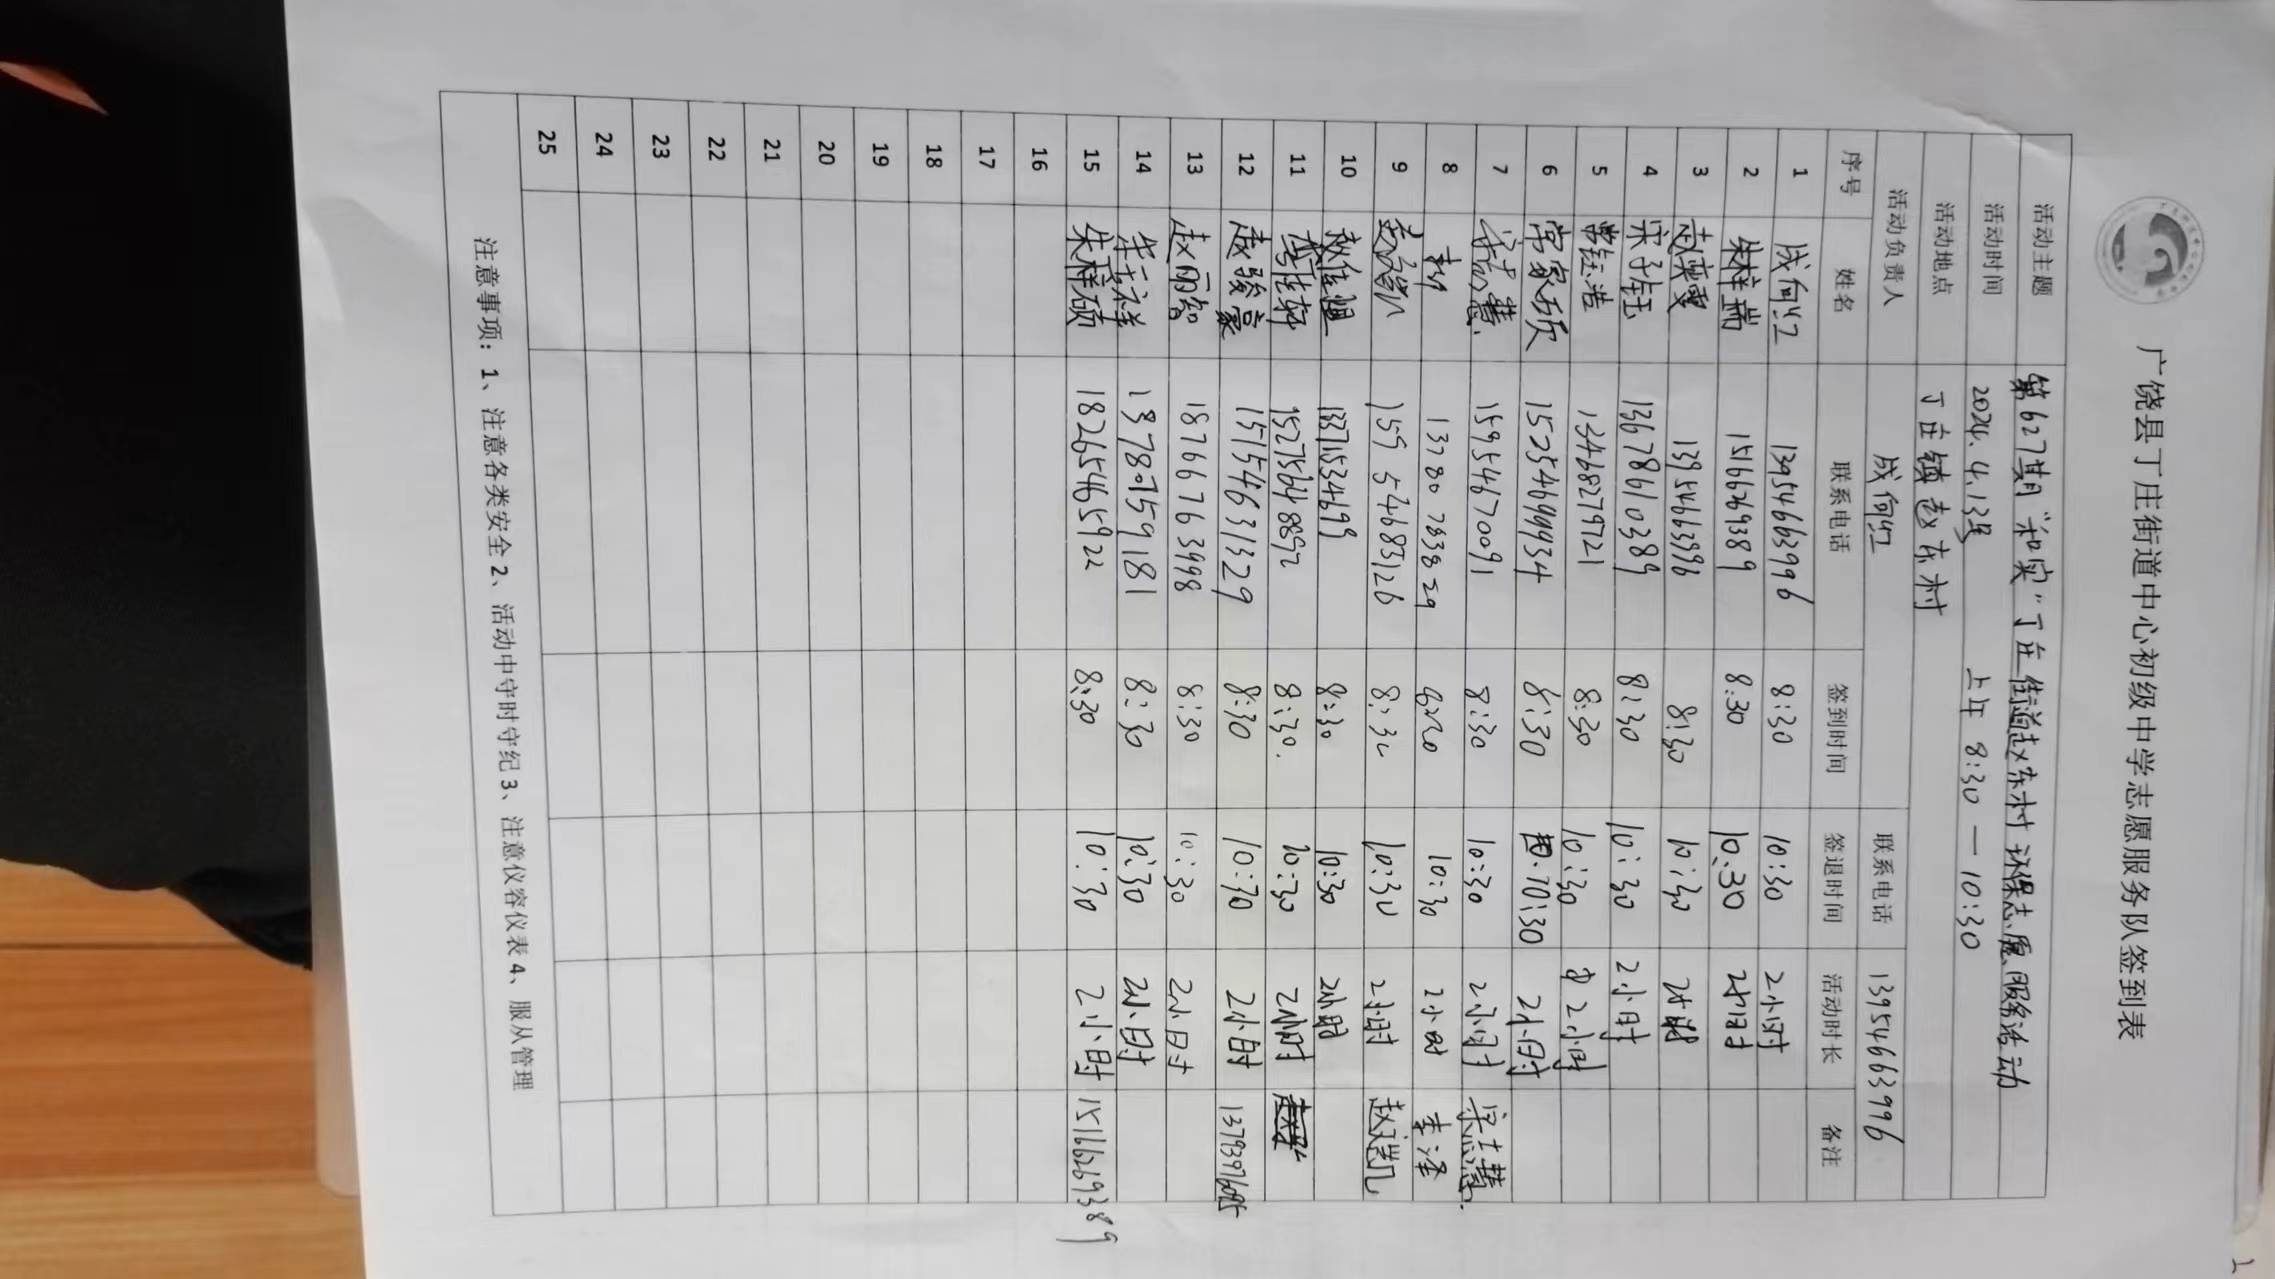 广饶县丁庄街道中心初级中学志愿服务队签到表
活动主题 第627期“和实”丁庄街道赵东村环保志愿服务活动
活动时间 2024.4.13号 上午 8:30—10:30
活动地点 丁庄镇赵东村
活动负责人 成向红 联系电话 13954663996
序号 姓名 联系电话 签到时间 签退时间 活动时长 备注
1 成向红 13954663996 8:30 10:30 2小时
2 朱梓瑞 15166269389 8:30 10:30 2小时
3 赵奕雯 13954663996 8:30 10:30 2小时
4 宋子钰 13678610389 8:30 10:30 2小时
5 常钰浩 13468279721 8:30 10:30 2小时
6 常家硕 15254699934 8:30 10:30 2小时
7 梁志慧 15954670091 8:30 10:30 2小时 梁志慧
8 13780783829 10:30 2小时 李泽
9 赵瑞凯 15554683126 8:30 10:30 2小时 赵瑞凯
10 赵佳旭 13715324699 8:30 10:30 2小时
11 15275648892 8:30. 10:30 2小时
12 赵骏豪 15154631329 8:30 10:30 2小时 13793976085
13 赵丽铭 18766763998 8:30 10:30 2小时
14 13780759181 8:30 10:30 2小时
15 朱梓硕 18265465922 8:30 10:30 2小时 15166269389
16
17
18
19
20
21
22
23
24
25
注意事项：1、注意各类安全2、活动中守时守纪3、注意仪容仪表4、服从管理